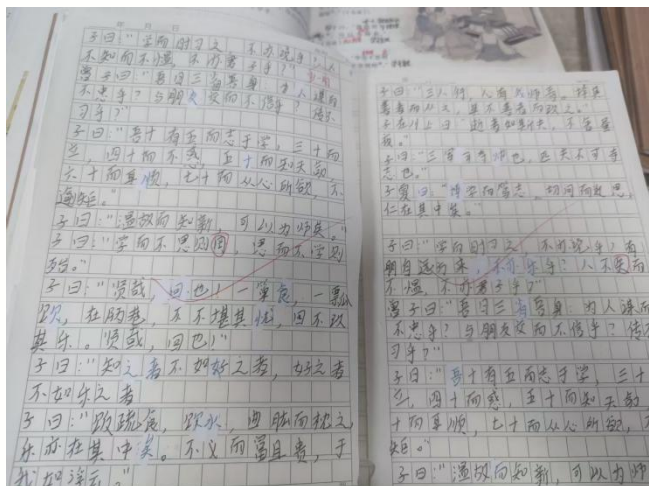 子曰："学而时习之 不亦说乎？人
不知而不愠，不亦君子乎？"
曾子曰："吾日三省吾身：为人谋而
不忠乎？与朋友交而不信乎？传不
习乎？"
子曰："吾十有五而志于学，三十而
立，四十而不惑，五十而知天命，
六十而耳顺，七十而从心所欲，不
逾矩。"
子曰："温故而知新，可以为师矣。"
子曰："学而不思则罔，思而不学则
殆。"
子曰："贤哉，回也！一箪食，一瓢
饮，在陋巷，人不堪其忧，回不改
其乐。贤哉，回也！"
子曰："知之者不如好之者，好之者
不如乐之者
子曰："饭疏食，饮水，曲肱而枕之，
乐亦在其中矣。不义而富且贵，于
我如浮云。"
子曰："三人行，必有我师焉。择其
善者而从之，其不善者而改之。"
子在川上曰："逝者如斯夫，不舍昼
夜。"
子曰："三军可夺帅也，匹夫不可夺
志也。"
子夏曰："博学而笃志，切问而近思，
仁在其中矣。"
子曰："学而时习之 不亦说乎！有
朋自远方来，不亦乐乎？人不知而
不愠，不亦君子乎？"
曾子曰："吾日三省吾身：为人谋而
不忠乎？与朋友交而不信乎？传不
习乎？"
子曰："吾十有五而志于学，三十
立，四十而惑，五十而知天命
十而耳顺，七十而从心所欲，不
矩。"
子曰："温故而知新，可以为师